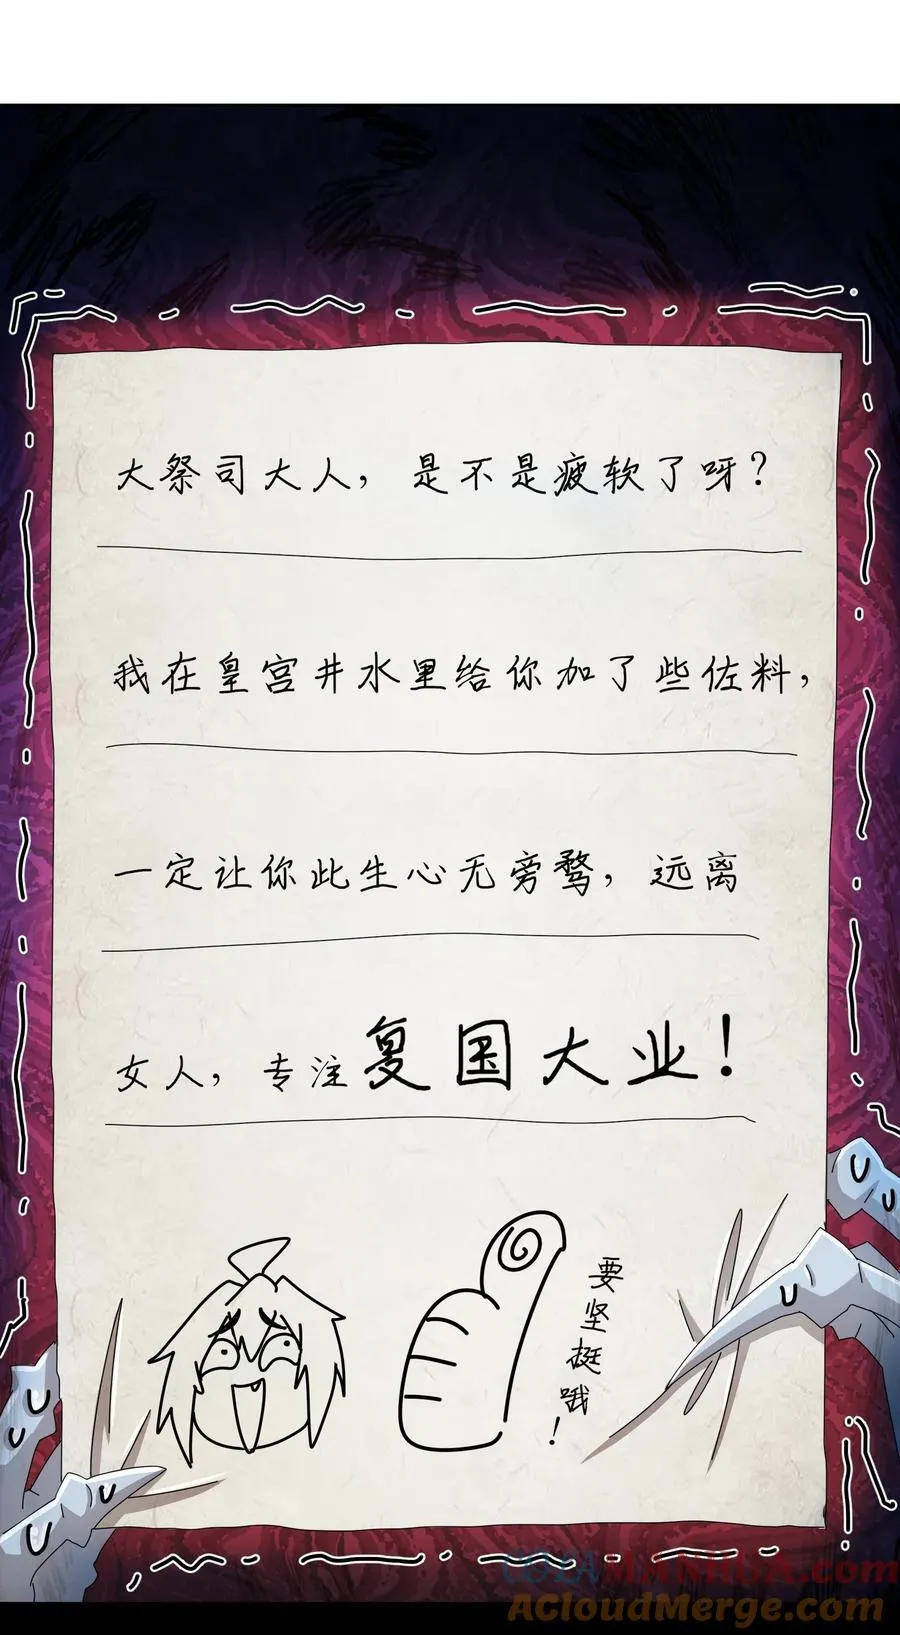 大祭司大人，是不是疲软了呀？
我在皇宫井水里给你加了些佐料，
一定让你此生心无旁骛，远离
女人，专注复国大业！
要坚挺哦！
COLAMANHUA.com
ACloudMerge.com